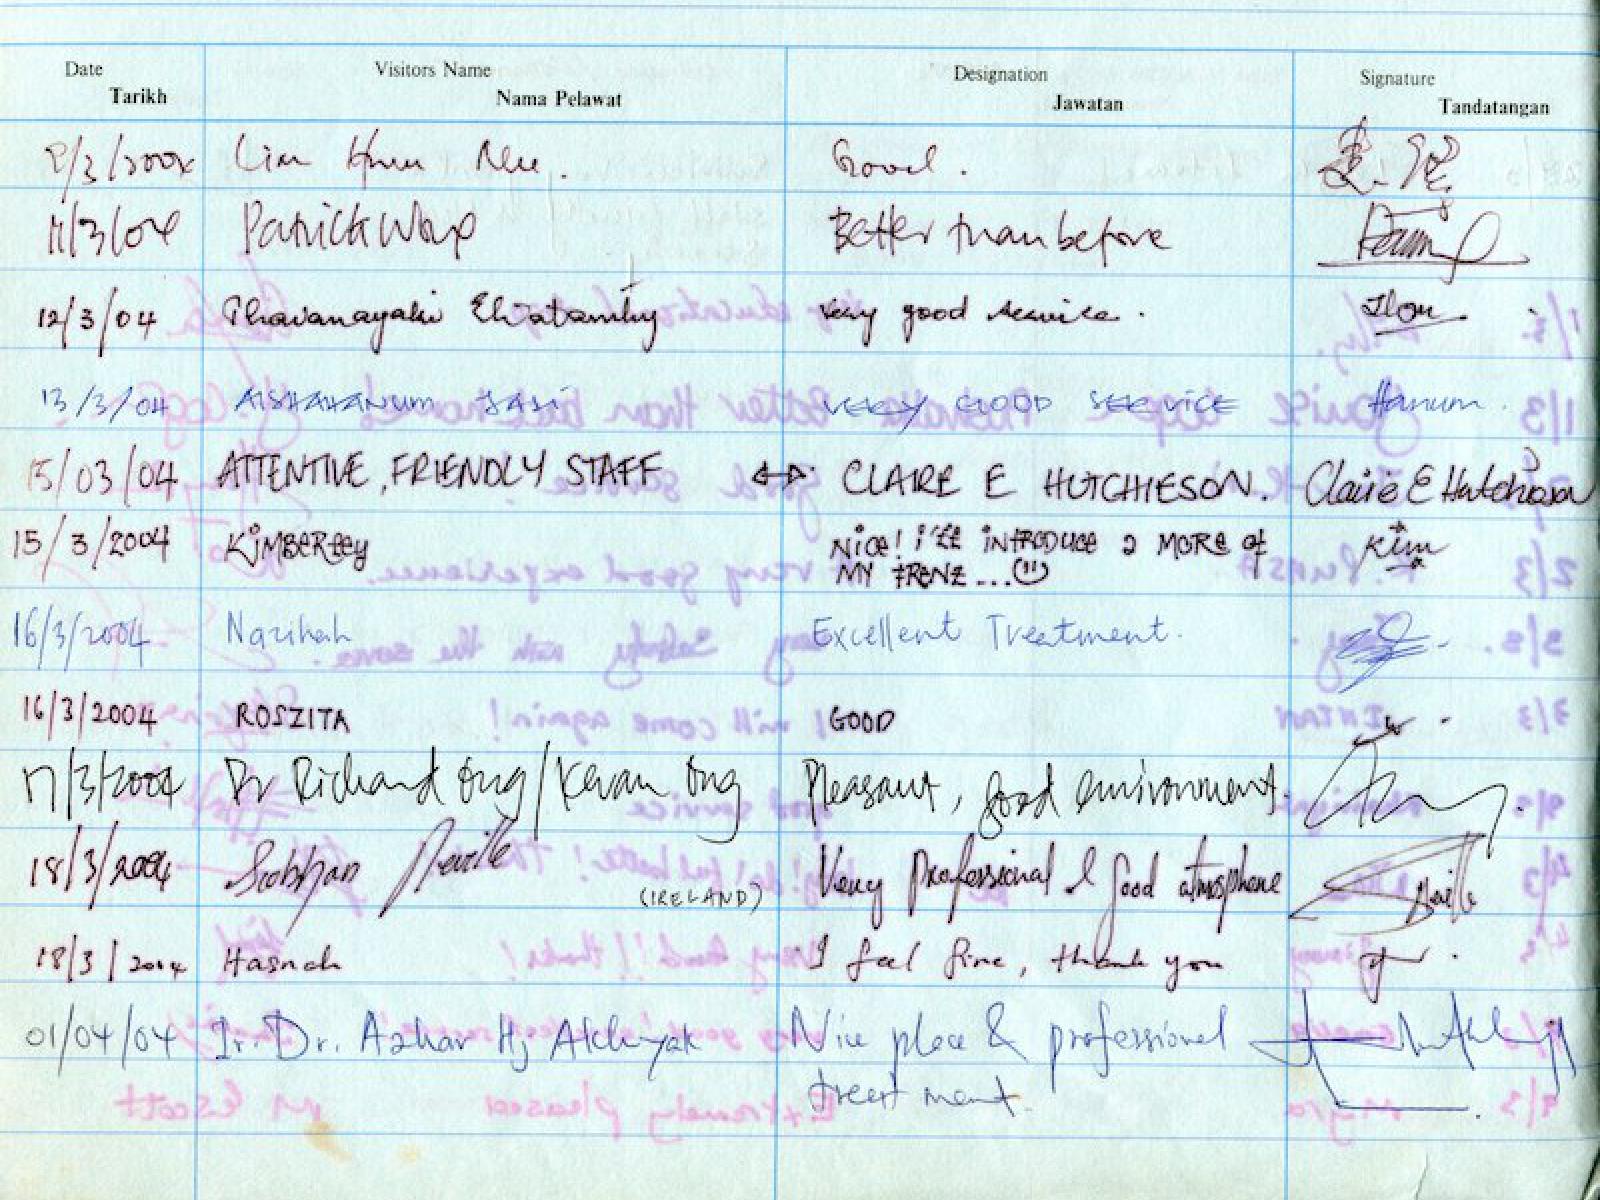 Date Visitors Name Designation Signature
Tarikh Nama Pelawat Jawatan Tandatangan
Lim Good.
Patrick Wong Better than before
12/3/04 very good service.
13/3/04 VERY GOOD SERVICE Hanum.
15/03/04 ATTENTIVE, FRIENDLY STAFF ↔ CLAIRE E HUTCHIESON. Claire E Hutchieson
15/3/2004 KiMBERLEY NiCE! i'LL iNTRODUCE 2 MORE of Kim
MY FRENZ...
16/3/2004 Nazihah Excellent Treatment.
16/3/2004 ROSZITA GOOD
17/3/2004 Dr Richard Ong/Kevan Ong Pleasant, good environment.
18/3/2004 Siobhan Neville (IRELAND) Very Professional & Good atmosphere Neville
18/3/2004 Hasnah I feel fine, thank you
01/04/04 Ir. Dr. Azhar Hj Nice place & professional
treatment.